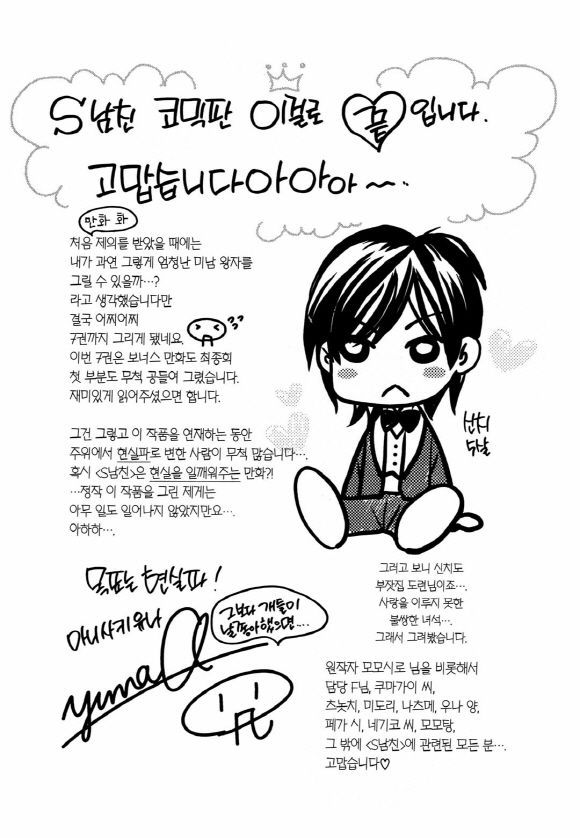 S남친 코믹판 이걸로 끝입니다.
고맙습니다아아아~.
만화 화
처음 제의를 받았을 때에는
내가 과연 그렇게 엄청난 미남 왕자를
그릴 수 있을까…?
라고 생각했습니다만
결국 어찌어찌
7권까지 그리게 됐네요.
???
이번 7권은 보너스 만화도 최종회
첫 부분도 무척 공들여 그렸습니다.
재미있게 읽어주셨으면 합니다.
그건 그렇고 이 작품을 연재하는 동안
주위에서 현실파로 변한 사람이 무척 많습니다….
혹시 <S남친>은 현실을 일깨워주는 만화?!
…정작 이 작품을 그린 제게는
아무 일도 일어나지 않았지만요….
아하하….
그러고 보니 신치도
부잣집 도련님이죠….
사랑을 이루지 못한
불쌍한 녀석…
그래서 그려봤습니다.
목표는 현실파!
아니사키 유나
yuna
그보다 개들이
날 좋아했으면….
원작자 모모시로 님을 비롯해서
담당 F님, 쿠마가이 씨,
츠놋치, 미도리, 나츠메, 우나 양,
페가 시, 네기코 씨, 모모탕,
그 밖에 <S남친>에 관련된 모든 분….
고맙습니다♡